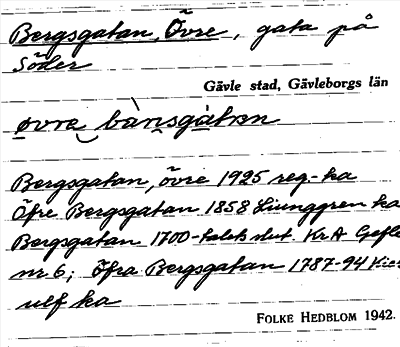 Bergsgatan, Övre, gata på
Söder
Gävle stad, Gävleborgs län
øvrа bàṇsgàtɜn
Bergsgatan, övre 1925 reg.-ka
Öfre Bergsgatan 1858 Ljunggren ka
Bergsgatan 1700-talets slut. Kr.A Gefle
nr 6; Öfra Bergsgatan 1787-94
ulf ka
FOLKE HEDBLOM 1942.